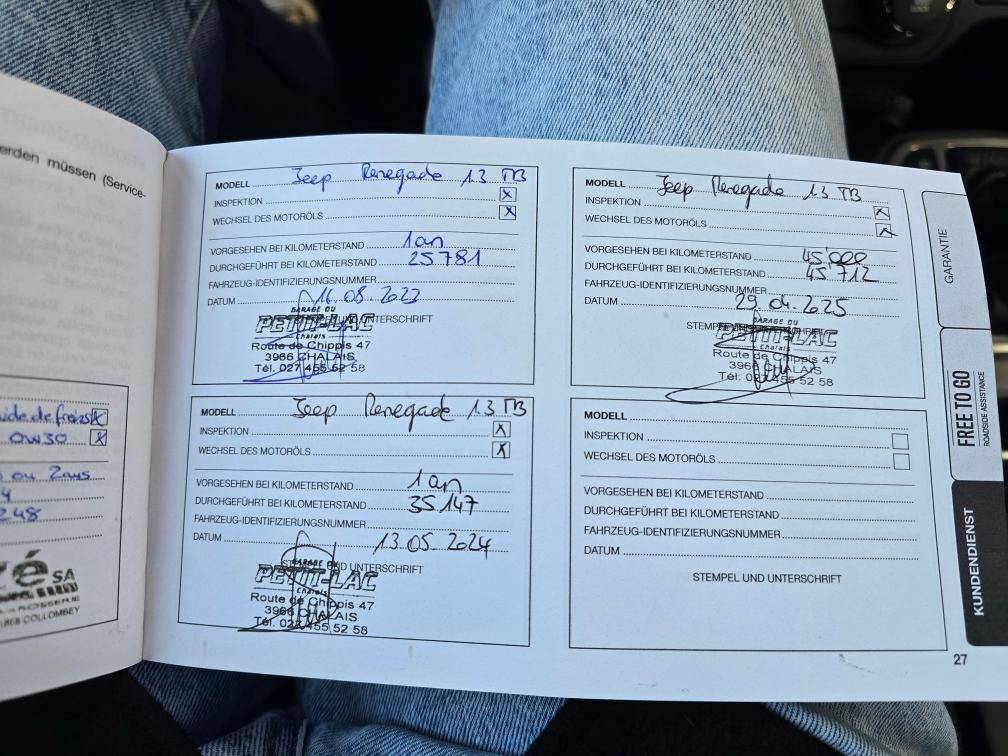 erden müssen (Service-
ide de freins X
0W30 X
ou 2ans
4
248
SA
1868 COLLOMBEY
MODELL Jeep Renegade 1.3 TB
INSPEKTION X
WECHSEL DES MOTORÖLS X
VORGESEHEN BEI KILOMETERSTAND 1an
DURCHGEFÜHRT BEI KILOMETERSTAND 25781
FAHRZEUG-IDENTIFIZIERUNGSNUMMER
DATUM 16.08.2023
UNTERSCHRIFT
GARAGE DU
PETIT-LAC
Chalais
Route de Chippis 47
3966 CHALAIS
Tél. 027 455 52 58
MODELL Jeep Renegade 1.3 TB
INSPEKTION X
WECHSEL DES MOTORÖLS X
VORGESEHEN BEI KILOMETERSTAND 1an
DURCHGEFÜHRT BEI KILOMETERSTAND 35147
FAHRZEUG-IDENTIFIZIERUNGSNUMMER
DATUM 13.05.2024
UND UNTERSCHRIFT
GARAGE DU
PETIT-LAC
Chalais
Route de Chippis 47
3966 CHALAIS
Tél. 027 455 52 58
MODELL Jeep Renegade 1.3 TB
INSPEKTION X
WECHSEL DES MOTORÖLS X
VORGESEHEN BEI KILOMETERSTAND 45'000
DURCHGEFÜHRT BEI KILOMETERSTAND 45'712
FAHRZEUG-IDENTIFIZIERUNGSNUMMER
DATUM 29.04.2025
GARAGE DU
PETIT-LAC
Chalais
Route de Chippis 47
3966 CHALAIS
Tél. 027 455 52 58
MODELL
INSPEKTION
WECHSEL DES MOTORÖLS
VORGESEHEN BEI KILOMETERSTAND
DURCHGEFÜHRT BEI KILOMETERSTAND
FAHRZEUG-IDENTIFIZIERUNGSNUMMER
DATUM
STEMPEL UND UNTERSCHRIFT
GARANTIE
FREE TO GO
ROADSIDE ASSISTANCE
KUNDENDIENST
27